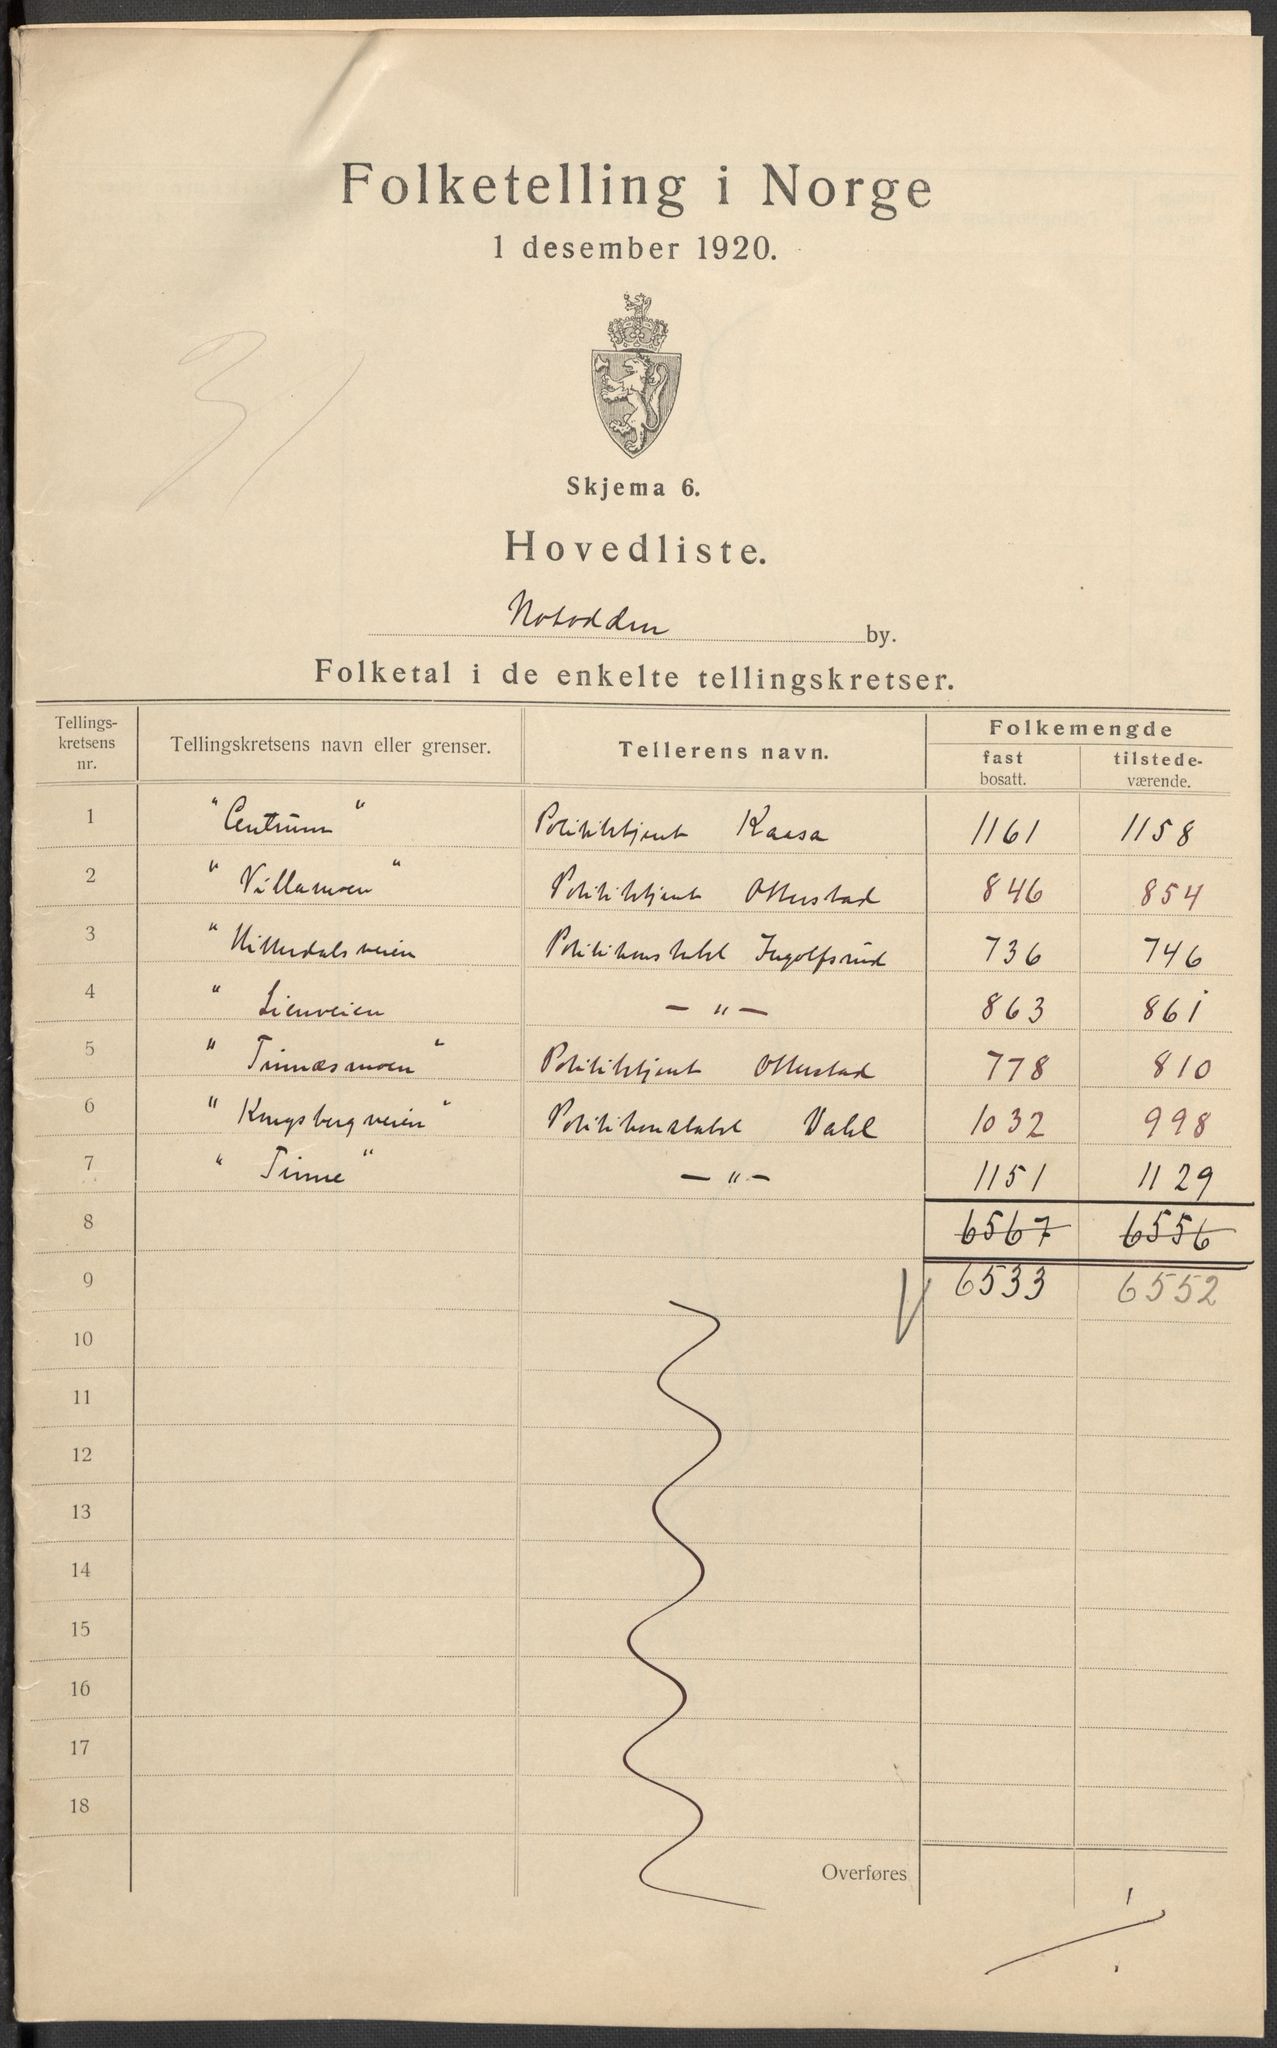 Folketelling i Norge
1 desember 1920.
Skjema 6.
Hovedliste.
Notodden by.
Folketal i de enkelte tellingskretser.
Tellings-
kretsens
nr.
Tellingskretsens navn eller grenser.
Tellerens navn.
Folkemengde
fast
bosatt.
tilstede-
værende.
1 "Centrum" Politibetjent Kaasa 1161 1158
2 "Villamoen" Politibetjent Otterstad 846 854
3 "Hitterdalsveien Politikonstabel Ingolfsrud 736 746
4 " Lienveien — " — 863 861
5 " Tinnesmoen" Politibetjent Otterstad 778 810
6 " Kongsbergveien" Politikonstabel Dahl 1032 998
7 " Tinne" — " — 1151 1129
8 6567 6556
9 6533 6552
10
11
12
13
14
15
16
17
18
Overføres